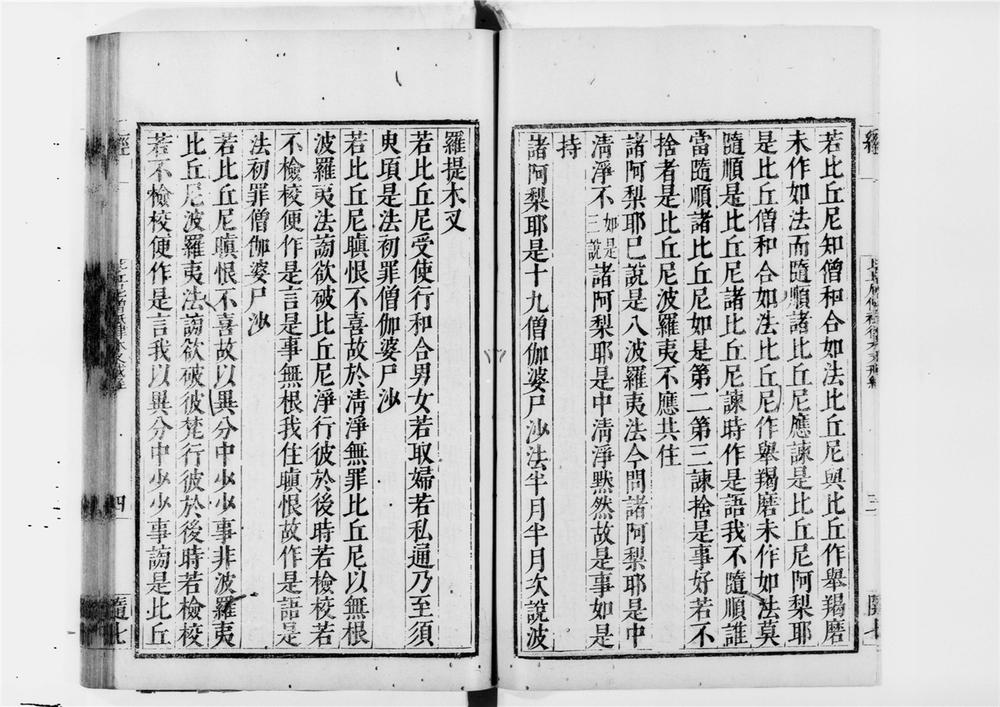 若比丘尼知僧和合如法比丘尼與比丘作舉羯磨
未作如法而隨順諸比丘尼應諫是比丘尼阿梨耶
是比丘僧和合如法比丘尼作舉羯磨未作如法莫
隨順是比丘尼諸比丘尼諫時作是語我不隨順誰
當隨順諸比丘尼如是第二第三諫捨是事好若不
捨者是比丘尼波羅夷不應共住
諸阿梨耶已說是八波羅夷法今問諸阿梨耶是中
清淨不如是三說諸阿梨耶是中清淨默然故是事如是
持
諸阿梨耶是十九僧伽婆尸沙法半月半月次說波
羅提木叉
若比丘尼受使行和合男女若取婦若私通乃至須
臾頃是法初罪僧伽婆尸沙
若比丘尼瞋恨不喜故於清淨無罪比丘尼以無根
波羅夷法謗欲破比丘尼淨行彼於後時若檢校若
不檢校便作是言是事無根我住瞋恨故作是語是
法初罪僧伽婆尸沙
若比丘尼瞋恨不喜故以異分中少少事非波羅夷
比丘尼波羅夷法謗欲破彼梵行彼於後時若檢校
若不檢校便作是言我以異分中少少事謗是比丘
經
四
隨七